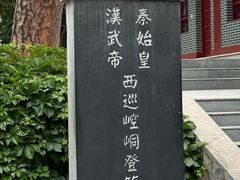 秦始皇
漢武帝
西巡崆峒登